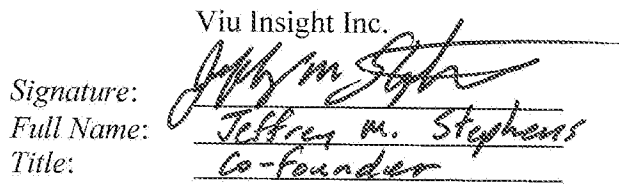 Viu Insight Inc.
Signature: Jeffrey M Stephens
Full Name: Jeffrey M. Stephens
Title: Co-Founder